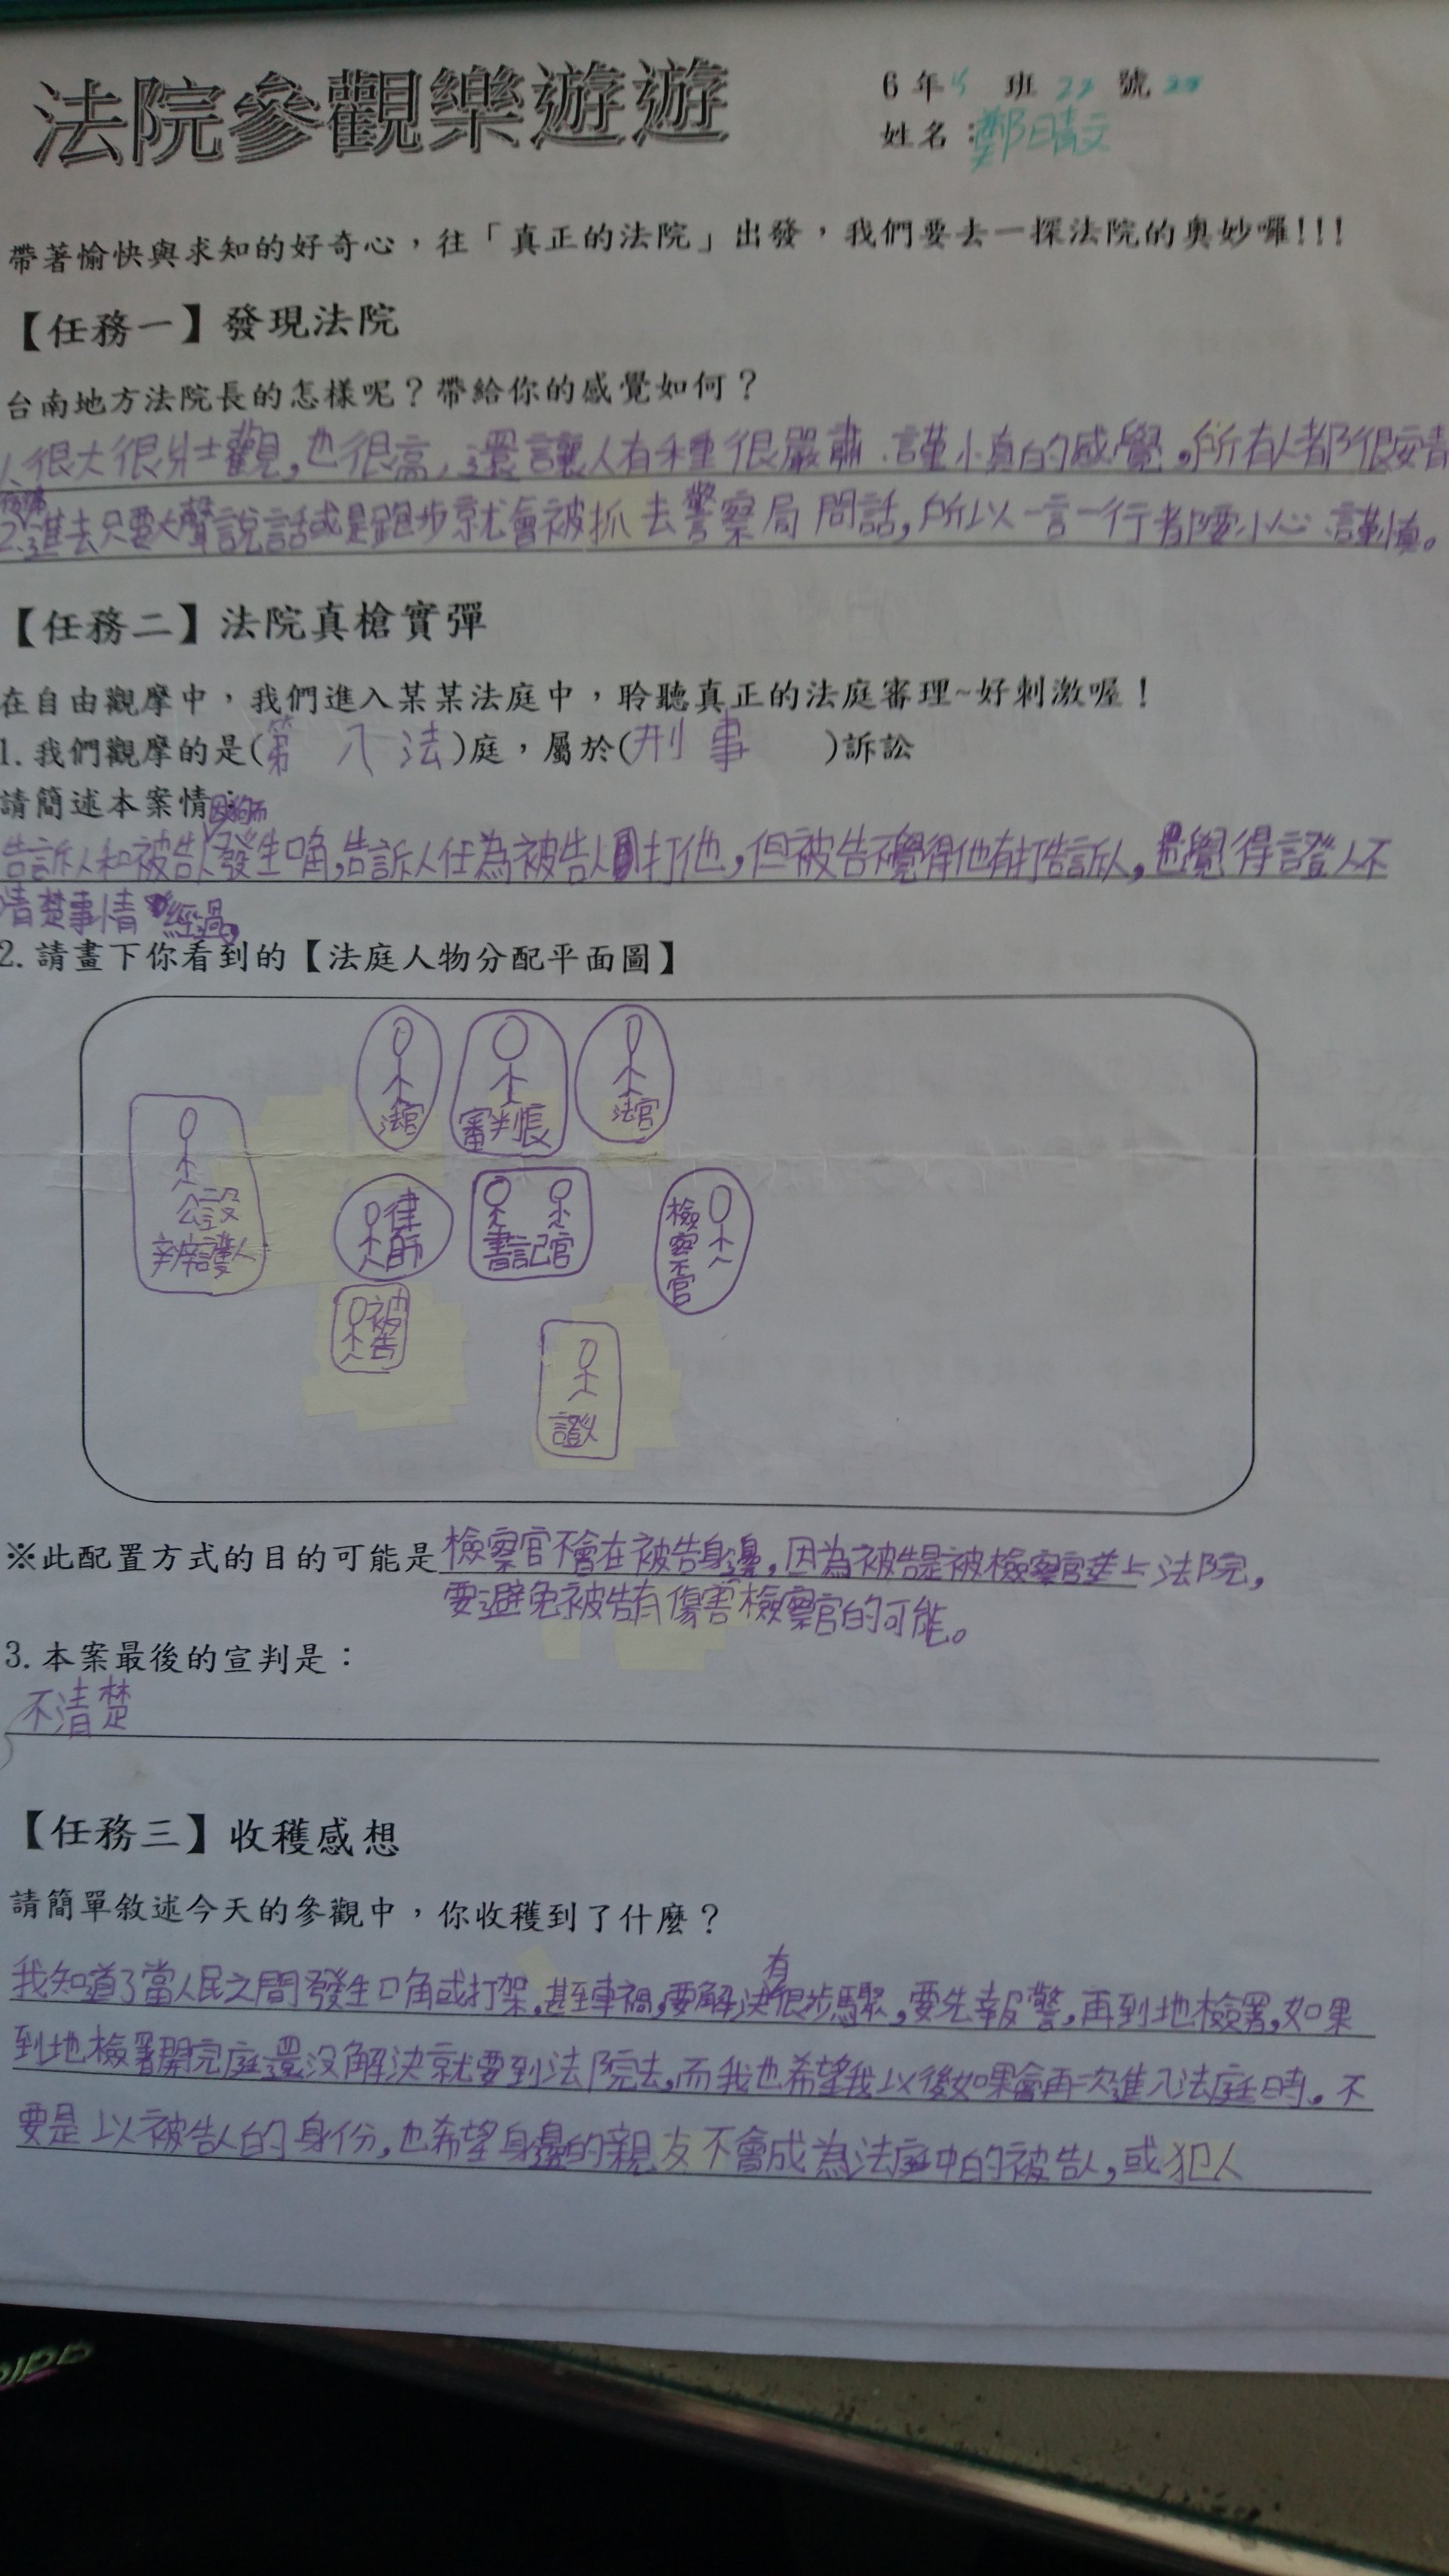 法院參觀樂遊遊
6年 班 22 號
姓名：鄭晴文
帶著愉快與求知的好奇心，往「真正的法院」出發，我們要去一探法院的奧妙囉!!!
【任務一】發現法院
台南地方法院長的怎樣呢？帶給你的感覺如何？
1、很大很壯觀,也很高,還讓人有種很嚴肅、謹小真的感覺,所有人都很安
2.進去只要大聲說話或是跑步就會被抓去警察局問話,所以一言一行都要小心謹慎。
【任務二】法院真槍實彈
在自由觀摩中，我們進入某某法庭中，聆聽真正的法庭審理~好刺激喔！
1.我們觀摩的是(第八法)庭，屬於(刑事)訴訟
請簡述本案情：
因狗而
告訴人和被告人發生口角,告訴人任為被告人打他,但被告不覺得他有打告訴人,還覺得證人不
清楚事情經過。
2.請畫下你看到的【法庭人物分配平面圖】
法官
審判長
法官
公設
辯護人
律師
書記官
檢察官
被告
證人
※此配置方式的目的可能是檢察官不會在被告身邊,因為被告是被檢察官送上法院,
要避免被告有傷害檢察官的可能。
3.本案最後的宣判是：
不清楚
【任務三】收穫感想
請簡單敘述今天的參觀中，你收穫到了什麼？
我知道了當人民之間發生口角或打架,甚至車禍,要解決有很步驟,要先報警,再到地檢署,如果
到地檢署開完庭還沒解決就要到法院去,而我也希望我以後如果會再次進入法庭時。不
要是以被告人的身份,也希望身邊的親友不會成為法庭中的被告人,或犯人